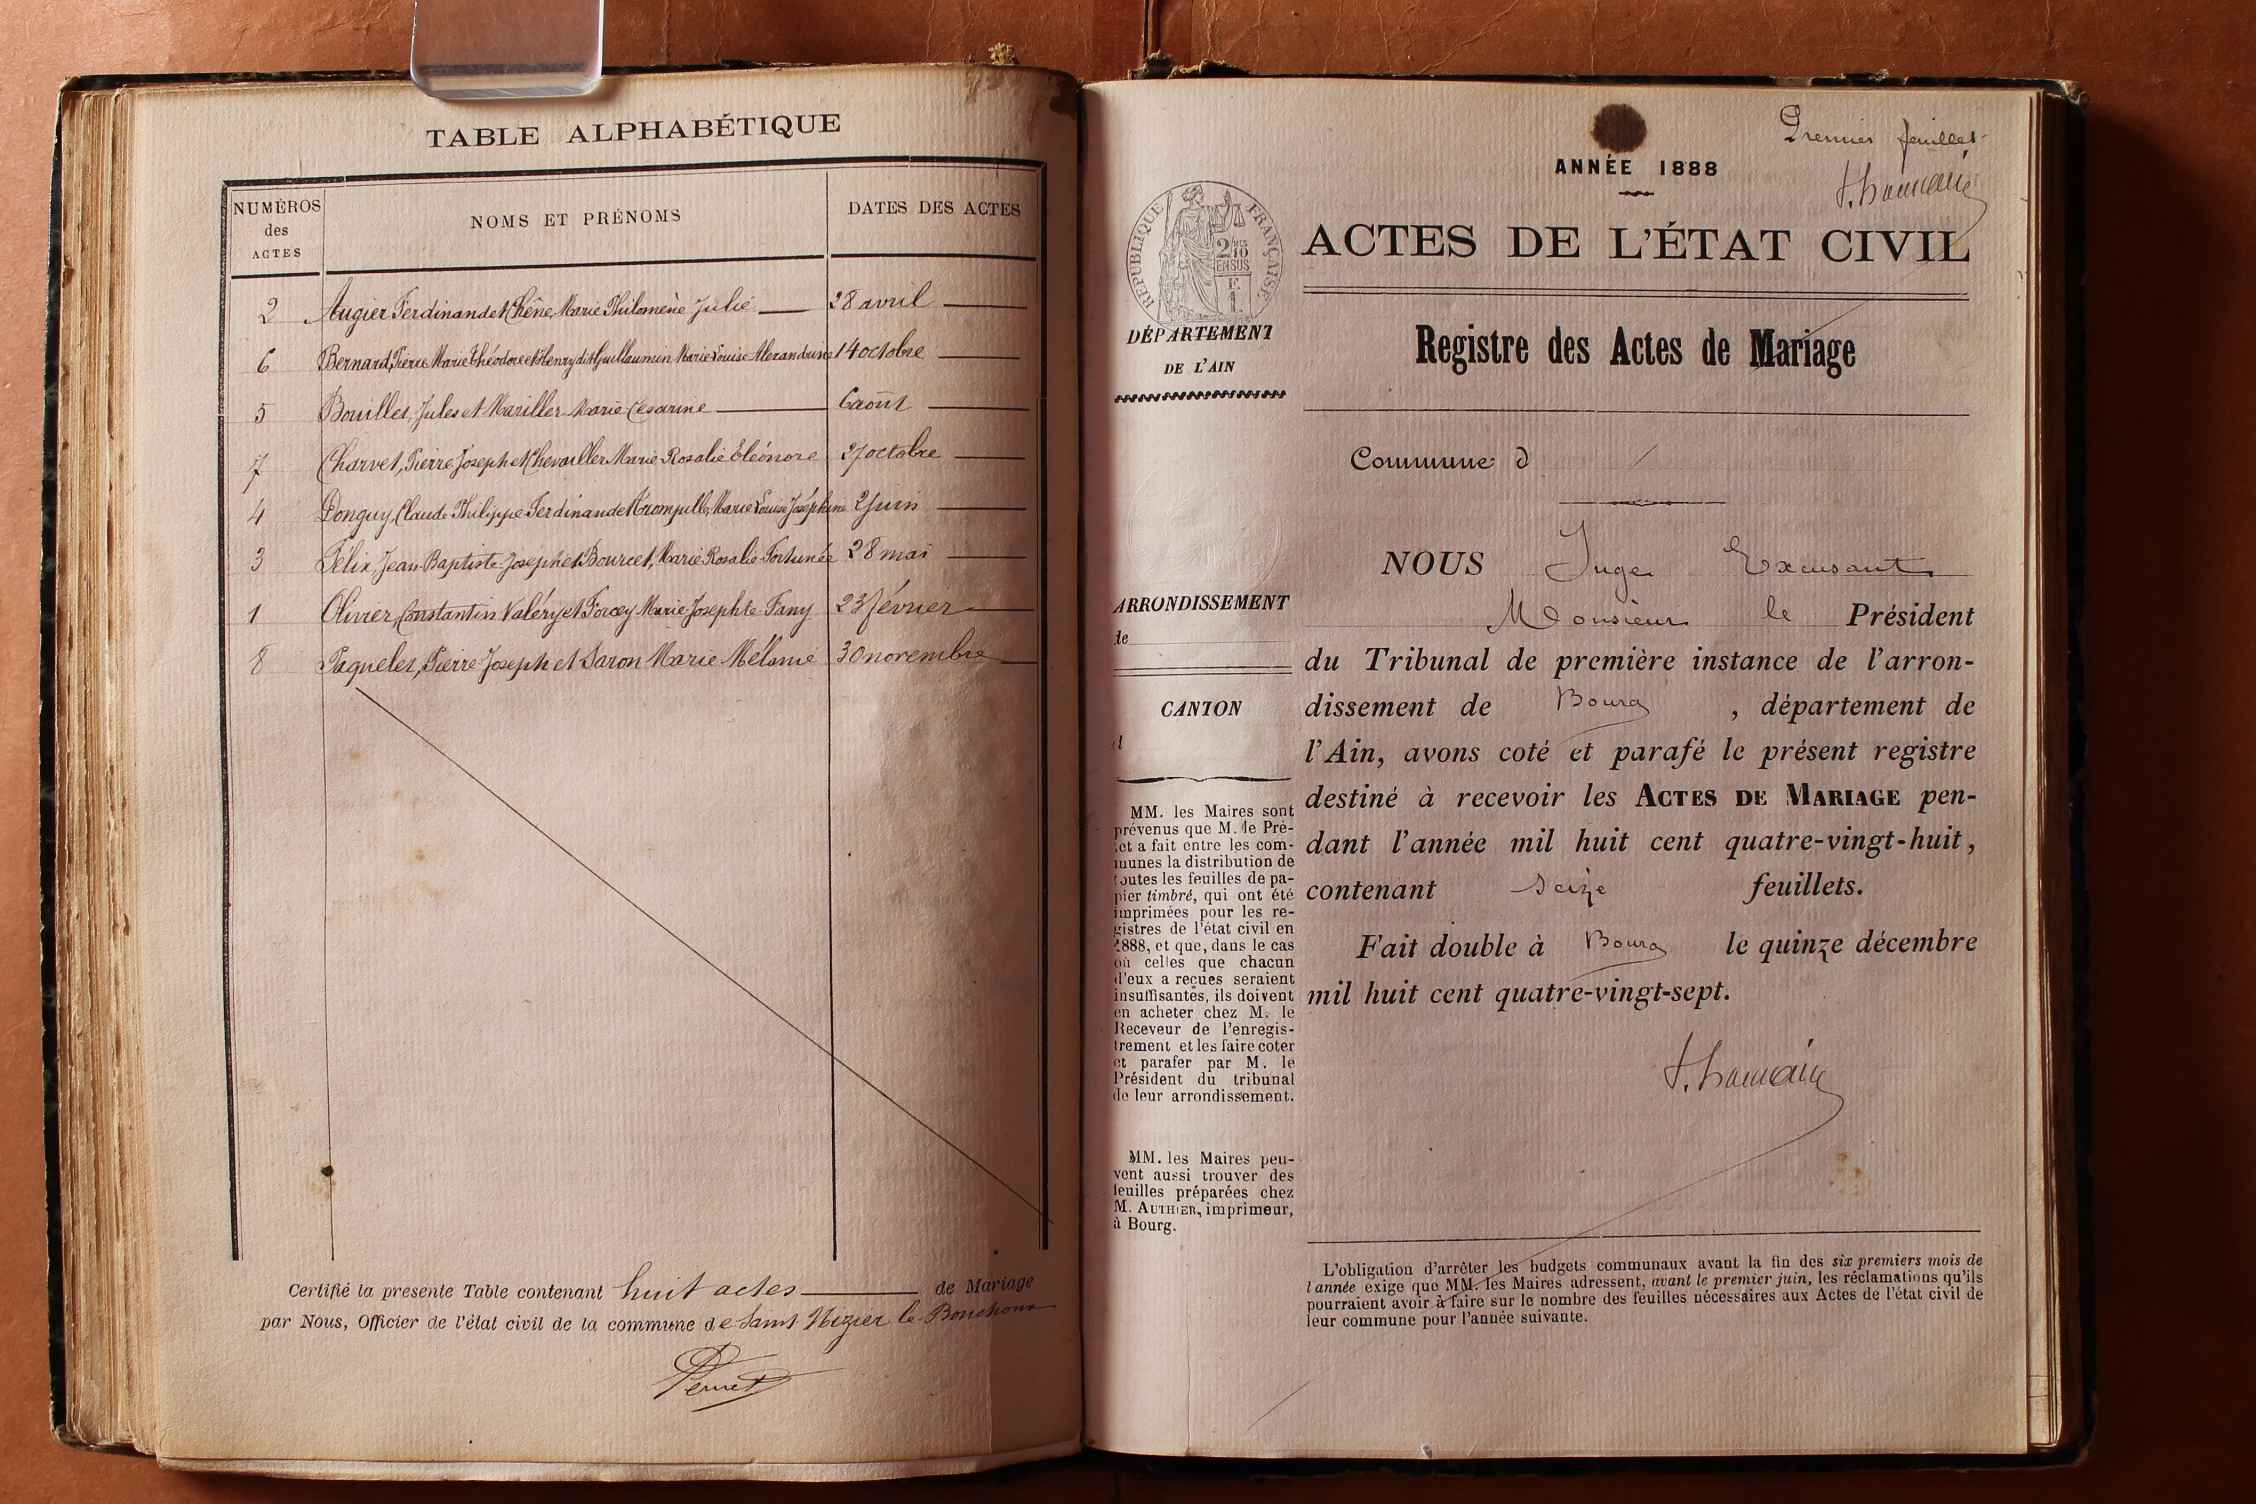 TABLE ALPHABÉTIQUE
NUMÉROS
des
ACTES
NOMS ET PRÉNOMS
DATES DES ACTES
2 Augier Ferdinand et Chêne, Marie Philomène Julie 28 avril
6 Bernard, Pierre Marie Théodore et Henry dit Guillaumin Marie Louise Alexandrine 14 octobre
5 Bouillet, Jules et Mariller Marie Césarine 6 août
7 Charvet, Pierre Joseph et Chevailler Marie Rosalie Eléonore 27 octobre
4 Donguy, Claude Philippe Ferdinand et Marie Louise Joséphine 2 juin
3 Félix Jean-Baptiste-Joseph et Bourcet, Marie Rosalie Fortunée 28 mai
1 Olivier, Constantin Valéry et Forcey Marie Josephte Fany 23 février
8 Paquelet, Pierre Joseph et Saron Marie Mélanie 30 novembre
Certifié la presente Table contenant huit actes de Mariage
par Nous, Officier de l'état civil de la commune de Saint Nizier le Bouchoux
Pernet
Premier feuillet
ANNÉE 1888
RÉPUBLIQUE FRANÇAISE
2/10
EN SUS
F.
1.
ACTES DE L'ÉTAT CIVIL
DÉPARTEMENT
DE L'AIN
Registre des Actes de Mariage
Commune d
NOUS Juge Excusant
Monsieur le Président
ARRONDISSEMENT
de
du Tribunal de première instance de l'arron-
CANTON
dissement de Bourg, département de
l'Ain, avons coté et parafé le présent registre
destiné à recevoir les ACTES DE MARIAGE pen-
dant l'année mil huit cent quatre-vingt-huit,
contenant seize feuillets.
Fait double à Bourg le quinze décembre
mil huit cent quatre-vingt-sept.
MM. les Maires sont
prévenus que M. le Pré-
fet a fait entre les com-
munes la distribution de
toutes les feuilles de pa-
pier timbré, qui ont été
imprimées pour les re-
gistres de l'état civil en
1888, et que, dans le cas
où celles que chacun
d'eux a reçues seraient
insuffisantes, ils doivent
en acheter chez M. le
Receveur de l'enregis-
trement et les faire coter
et parafer par M. le
Président du tribunal
de leur arrondissement.
MM. les Maires peu-
vent aussi trouver des
feuilles préparées chez
M. AUTHIER, imprimeur,
à Bourg.
L'obligation d'arrêter les budgets communaux avant la fin des six premiers mois de
l'année exige que MM. les Maires adressent, avant le premier juin, les réclamations qu'ils
pourraient avoir à faire sur le nombre des feuilles nécessaires aux Actes de l'état civil de
leur commune pour l'année suivante.